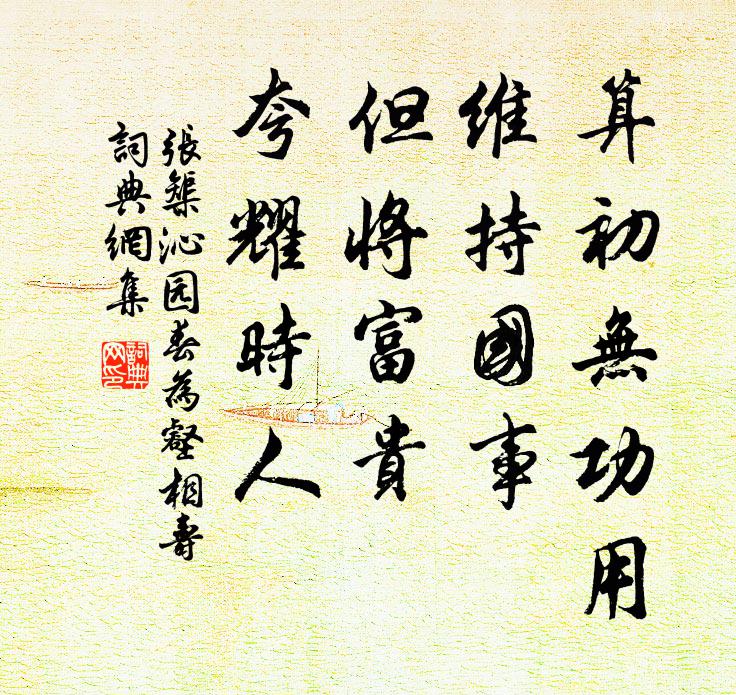 算初無功用
維持國事
但將富貴
夸耀時人
張榘沁园春為壑相壽
詞典網集
詞典
网印